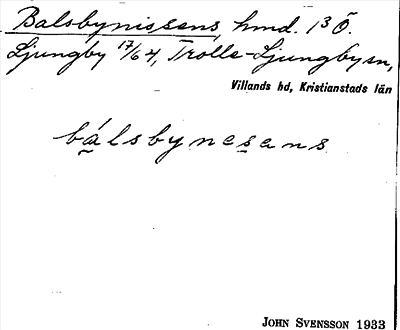 Balsbynissens, hmd. 13 Ö.
Ljungby 17/64, Trolle-Ljungby sn,
Villands hd, Kristianstads län
bá̲lsbynes̲ans
JOHN SVENSSON 1933